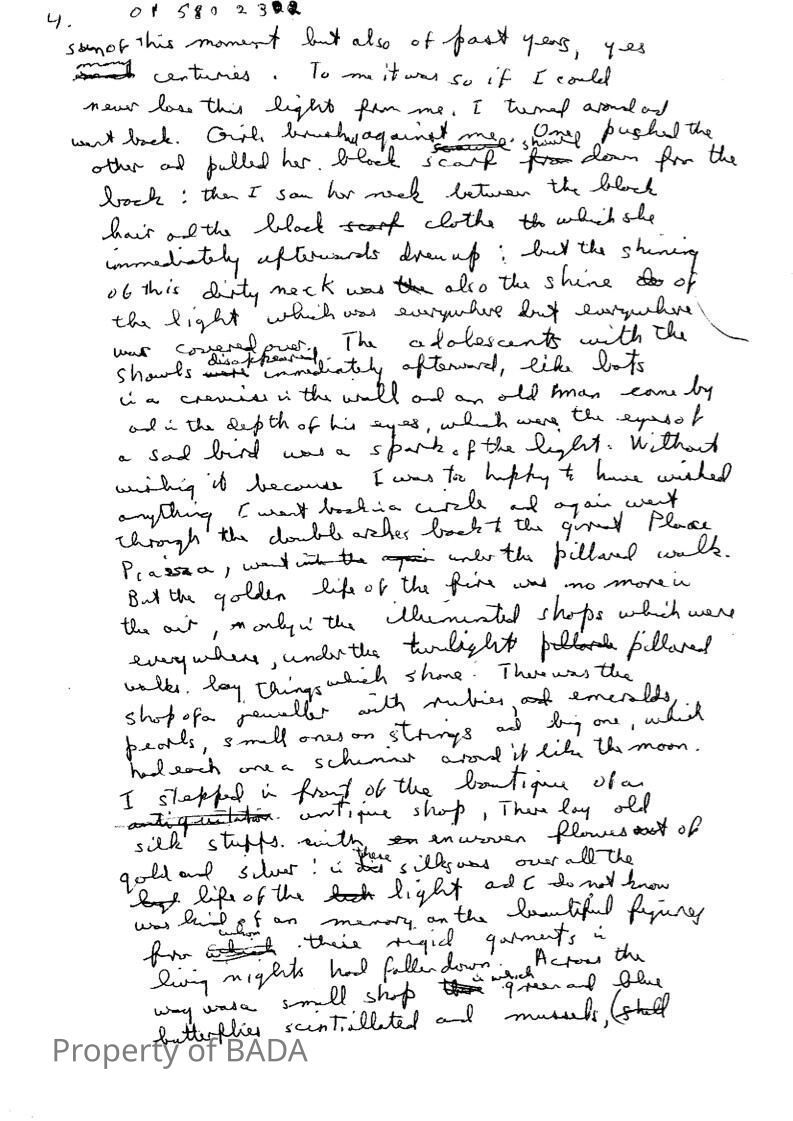 4. 01 580 2322
sun of this moment but also of past years, yes
many centuries. To me it was so if I could
never lose this light from me. I turned around ad
went back. Girls brushed against me. One pushed the
other ad pulled her black shawl down from the
back : then I saw her neck between the black
hair ad the black clothe which she
immediately afterwards drew up : but the shining
of this dirty neck was also the shine of
the light which was everywhere but everywhere
was covered over. The adolescents with the
shawls disappearing immediately afterward, like bats
in a crevise in the wall and an old man came by
ad in the depth of his eyes, which were the eyes of
a sad bird was a spark of the light. Without
wishing it because I was too happy to have wished
anything I went back in a circle ad again went
through the double arches back to the great Place
Piazza, went under the pillared walk.
But the golden life of the fire was no more in
the air, only in the illuminated shops which were
everywhere, under the twilight pillared
walks. lay things which shone. There was the
shop of a jeweller with rubies, emeralds,
pearls, small ones on strings ad big one, which
had each one a schimmer around it like the moon.
I stepped in front of the boutique of an
antique shop, There lay old
silk stuffs. with enwoven flowers out of
gold and silver : in these silks was over all the
life of the light ad I do not know
was kind of an memory on the beautiful figures
from whom these rigid garments in
living nights had fallen down. Across the
way was a small shop in which green and blue
butterflies scintillated and mussels, (shell
Property of BADA